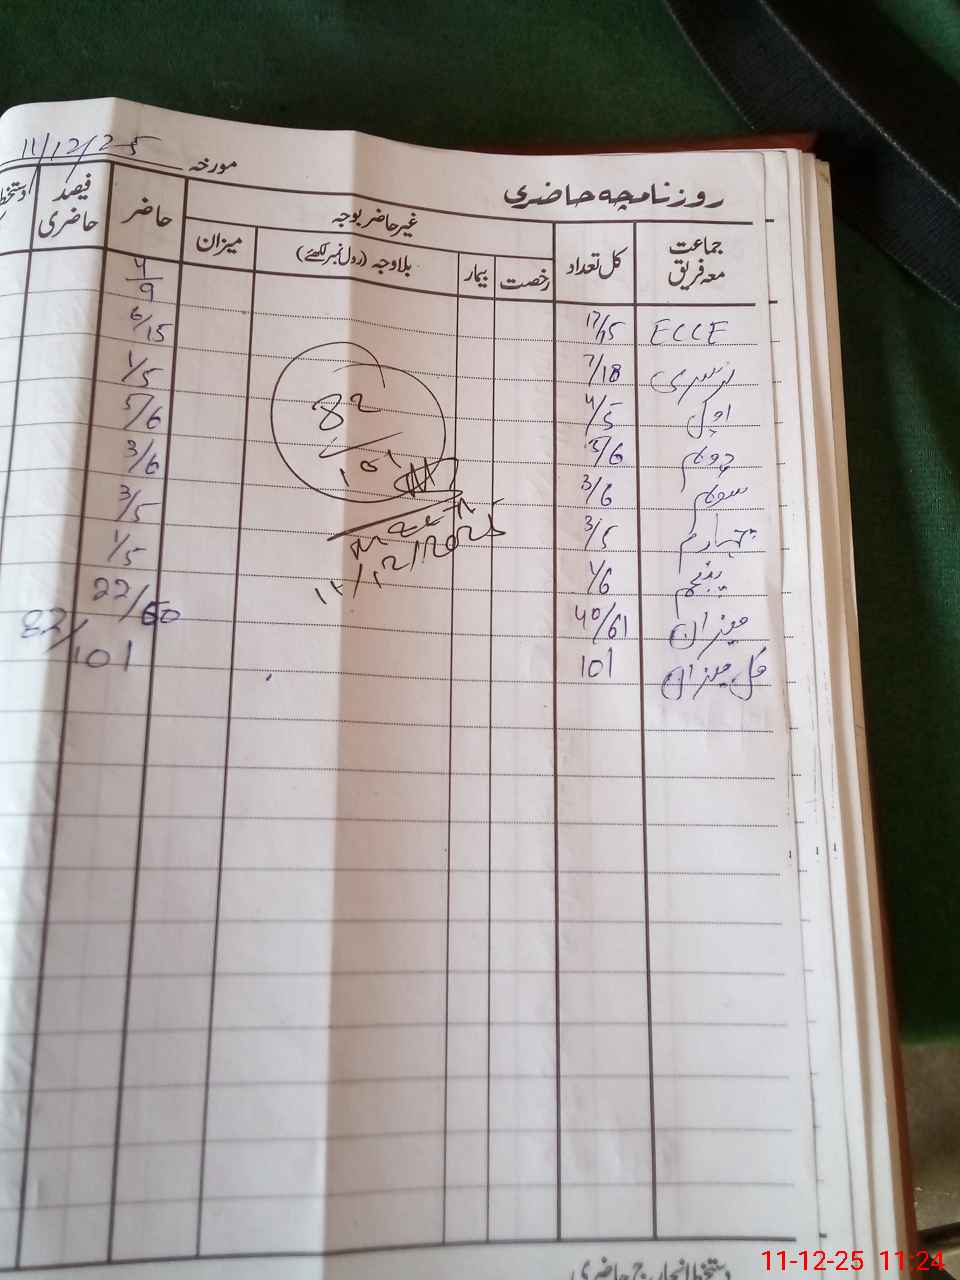 مورخہ 11/12/25
روزنامچہ حاضری
جماعت معہ فریق
کل تعداد
غیر حاضر بوجہ
رخصت
بیمار
بلاوجہ (رول نمبر لکھئے)
میزان
حاضر
فیصد حاضری
دستخط
4/9
ECCE 17/15 6/15
نرسری 7/18 1/5
اول 4/5 5/6
دوئم 5/6 3/6
سوئم 3/6 3/5
چہارم 3/5 1/5
پنجم 1/6
میزان 40/61 22/60
کل میزان 101 82/101
82
101
12/12/2025
دستخط انچارج حاضری
11-12-25 11:24